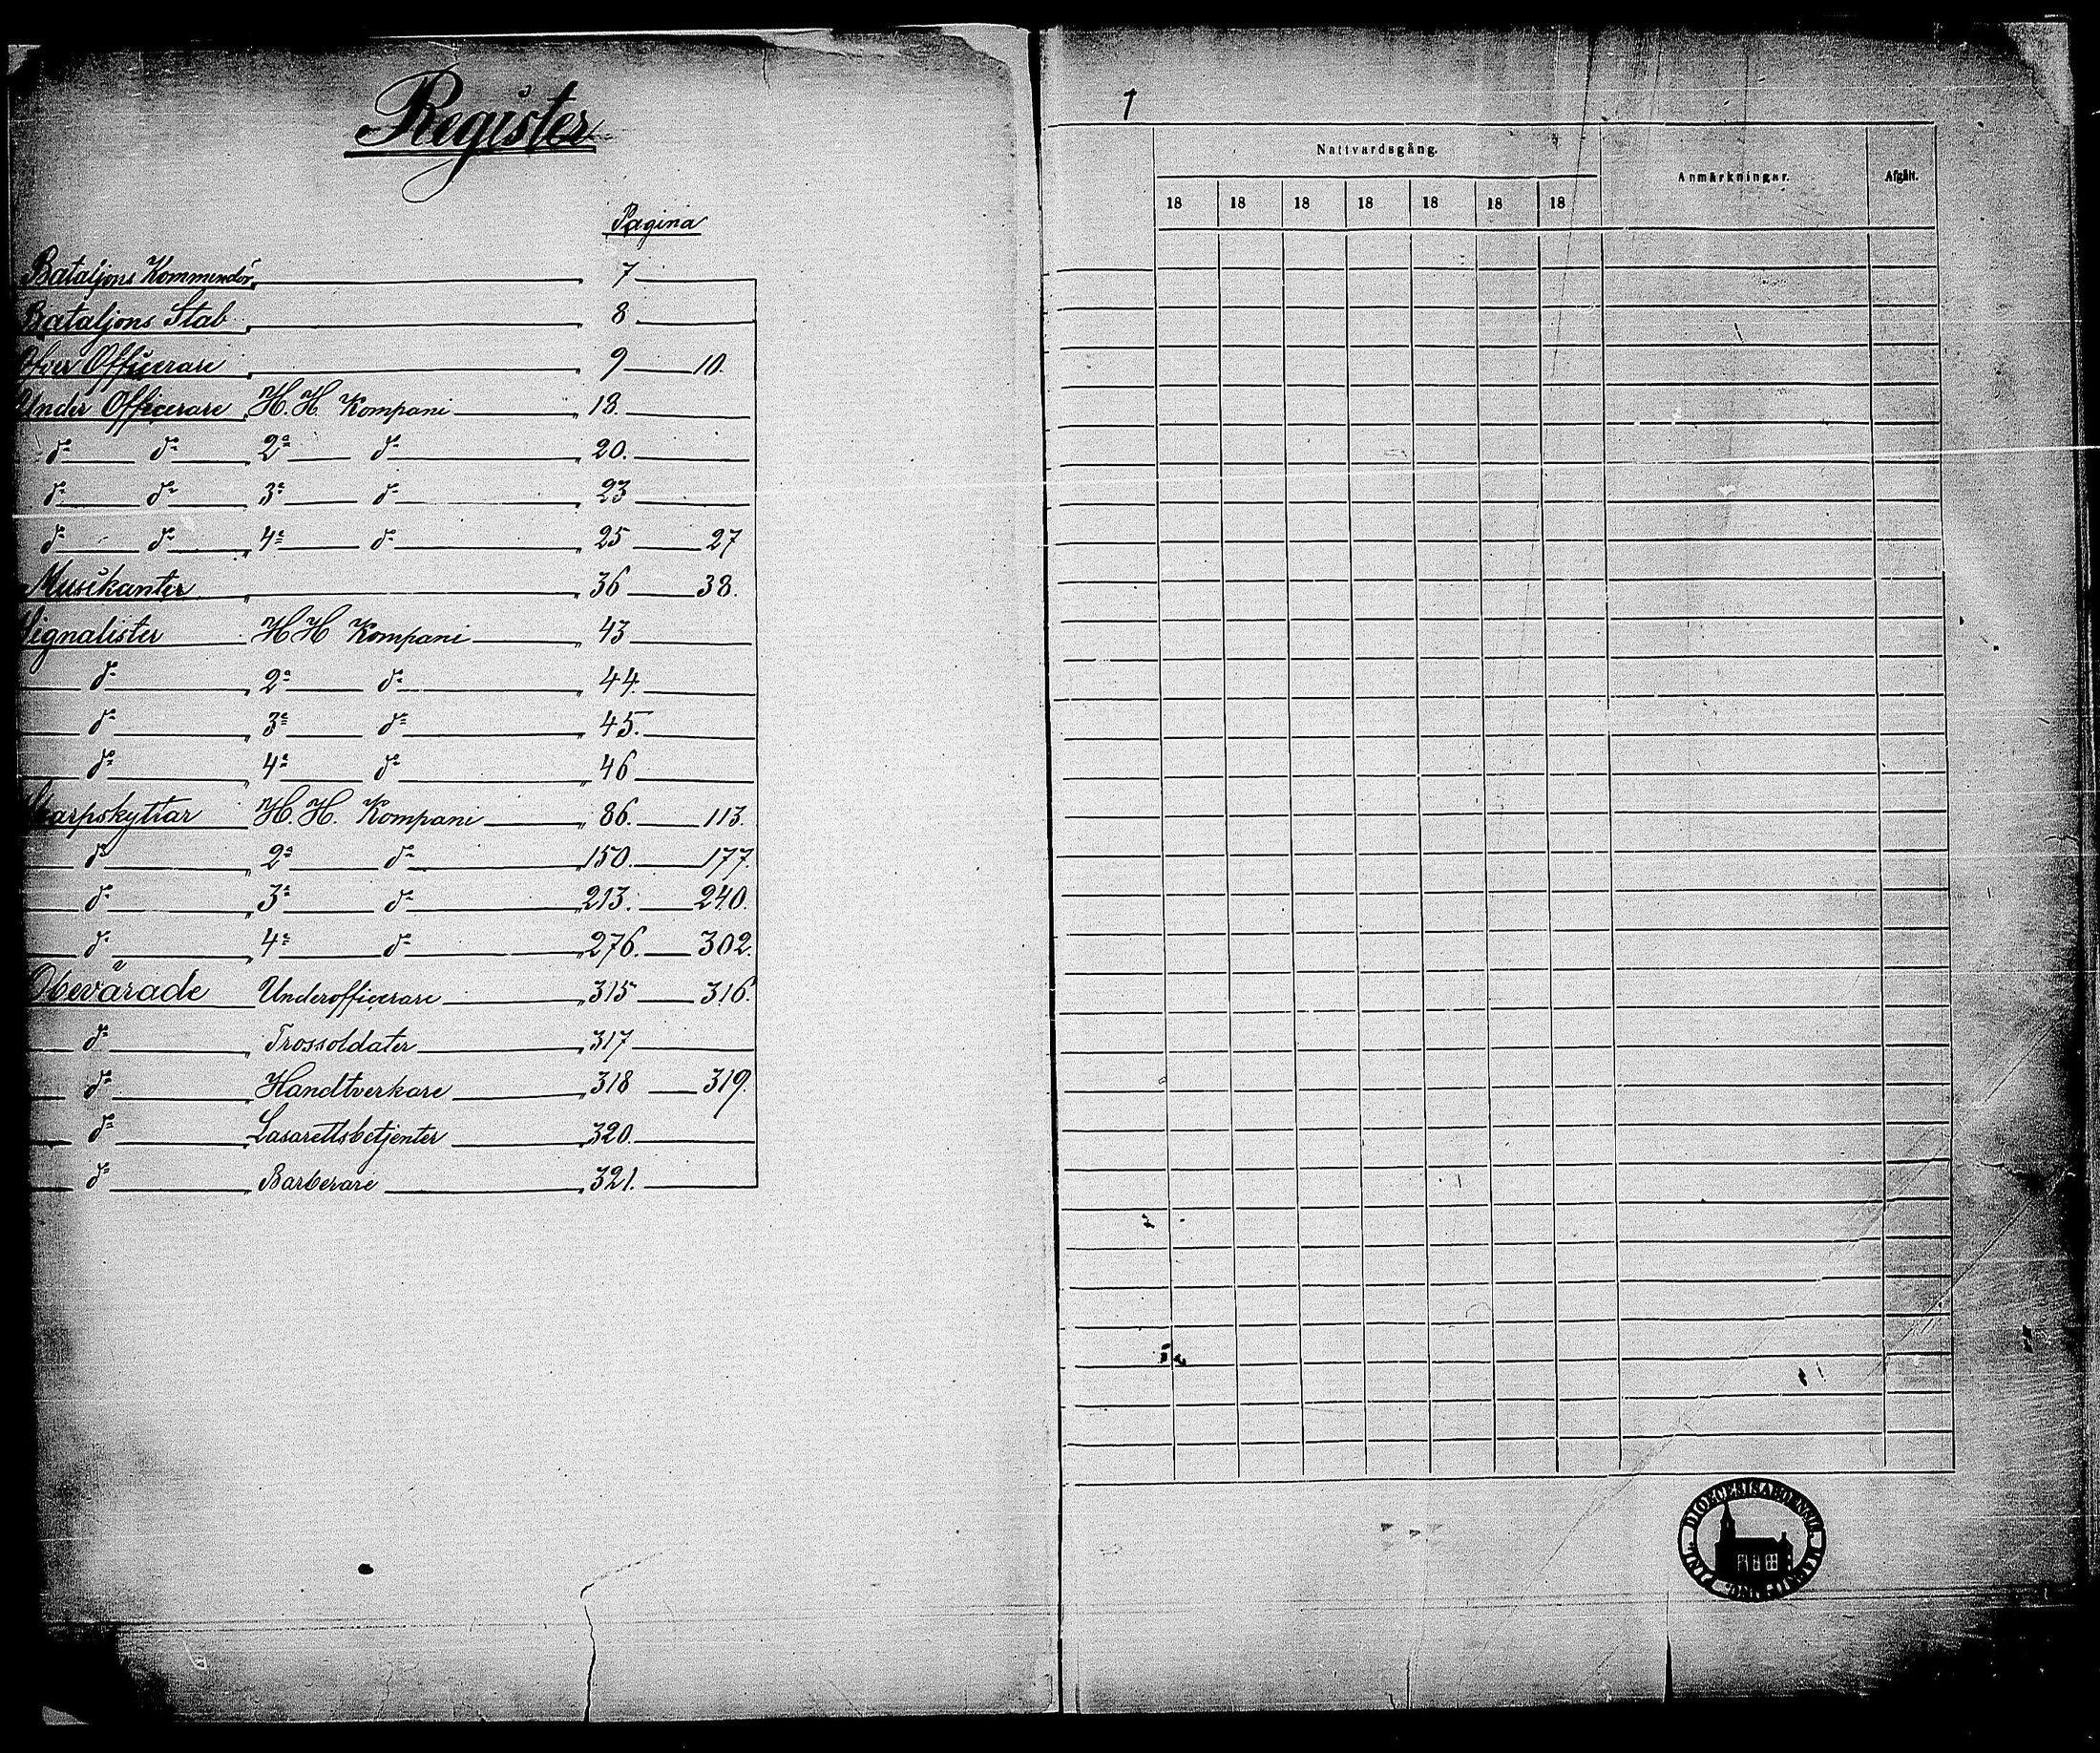 Register
Pagina
Bataljons Kommendör 7
Bataljons Stab 8
Öfver Officerare 9 10.
Under Officerare H. H. Kompani 18.
do do 2a do 20.
do do 3e do 23
do do 4e do 25 27
Musikanter 36 38.
Signalister H H Kompani 43
do 2a do 44.
do 3e do 45.
do 4e do 46
Skarpskyttar H. H. Kompani 86. 113.
do 2a do 150. 177.
do 3e do 213. 240.
do 4e do 276. 302.
Obevärade Underofficerare 315 316.
do Trossoldater 317
do Handtverkare 318 319.
do Lasarettsbetjenter 320.
do Barberare 321.
1
Nattvardsgång.
Anmärkningar.
Afgått.
18 18 18 18 18 18 18